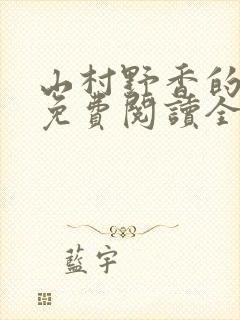 山村野香的
免費閱讀全
藍宇